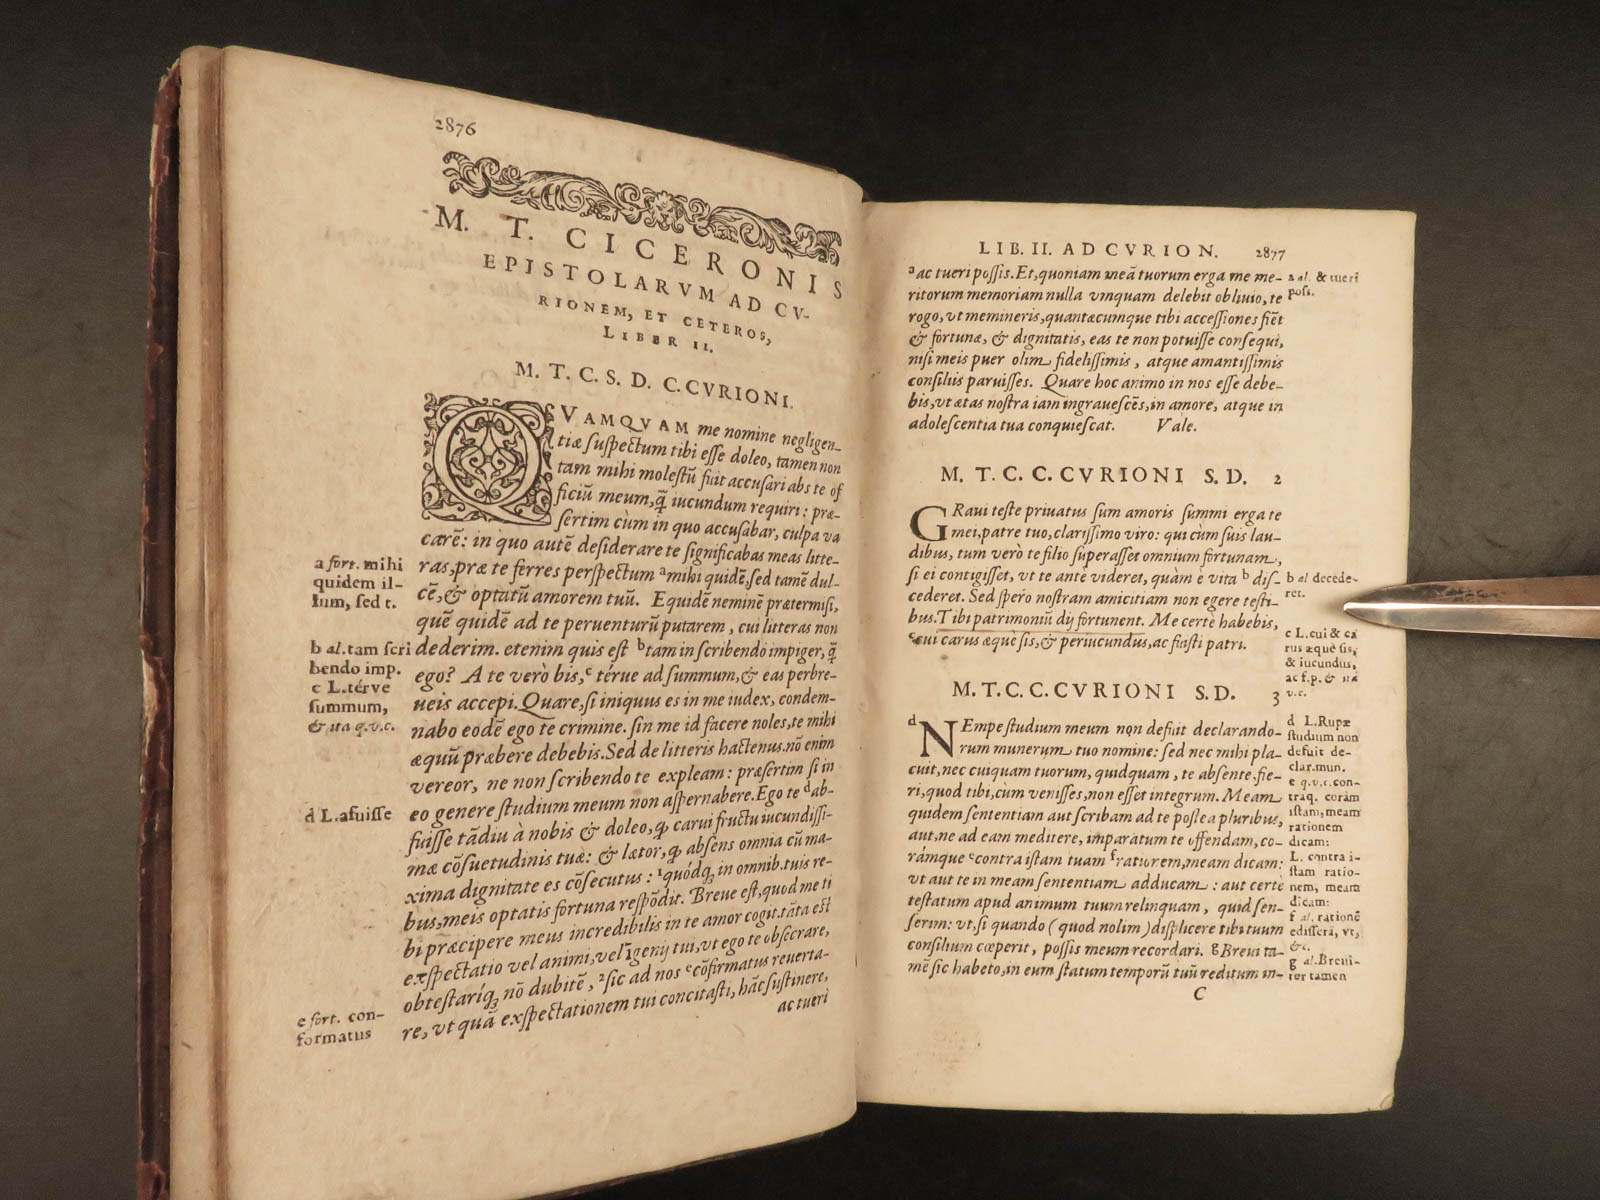 2876
M. T. CICERONIS
EPISTOLARVM AD CV-
RIONEM, ET CETEROS,
LIBER II.
M. T. C. S. D. C. CVRIONI.
QVAMQVAM me nomine negligen-
tiæ suspectum tibi esse doleo, tamen non
tam mihi molestũ fuit accusari abs te of
ficiũ meum, q̃ iucundum requiri: præ-
sertim cùm in quo accusabar, culpa va
carẽ: in quo autẽ desiderare te significabas meas litte-
ras, præ te ferres perspectum ᵃmihi quidẽ, sed tamẽ dul-
cẽ, & optatũ amorem tuũ. Equidẽ neminẽ prætermisi,
quẽ quidẽ ad te peruenturũ putarem, cui litteras non
dederim. etenim quis est ᵇtam in scribendo impiger, q̃
ego? A te verò bis, ᶜtérue ad summum, & eas perbre-
ueis accepi. Quare, si iniquus es in me iudex, condem-
nabo eodẽ ego te crimine. sin me id facere noles, te mihi
æquũ præbere debebis. Sed de litteris hactenus. nõ enim
vereor, ne non scribendo te expleam: præsertim si in
eo genere studium meum non aspernabere. Ego te ᵈab-
fuisse tãdiu à nobis & doleo, φ carui fructu iucundissi-
mæ cõsuetudinis tuæ: & lætor, φ absens omnia cũ ma-
xima dignitate es cõsecutus: ¹quódq; in omnib. tuis re-
bus, meis optatis fortuna respõdit. Breue est, quod me ti
bi præcipere meus incredibilis in te amor cogit. tãta est
exspectatio vel animi, vel igenij tui, vt ego te obsecrare,
obtestaríq; nõ dubitẽ, ²sic ad nos ᵉcõfirmatus reuerta-
re, vt quã exspectationem tui concitasti, hãc sustinere,
ac tueri
a fort. mihi
quidem il-
lum, sed t.
b al. tam scri
bendo imp.
c L. térve
summum,
& ita q.v.c.
d L. afuisse
e fort. con-
formatus
LIB. II. AD CVRION. 2877
ᵃac tueri possis. Et, quoniam meã tuorum erga me me-
ritorum memoriam nulla vmquam delebit obliuio, te
rogo, vt memineris, quantæcumque tibi accessiones fiẽt
& fortunæ, & dignitatis, eas te non potuisse consequi,
nisi meis puer olim fidelissimis, atque amantissimis
consiliis paruisses. Quare hoc animo in nos esse debe-
bis, vt ætas nostra iam ingrauescẽs, in amore, atque in
adolescentia tua conquiescat. Vale.
M. T. C. C. CVRIONI S. D. 2
GRaui teste priuatus sum amoris summi erga te
mei, patre tuo, clarissimo viro: qui cùm suis lau-
dibus, tum verò te filio superasset omnium fortunam,
si ei contigisset, vt te ante videret, quàm è vita ᵇ dis-
cederet. Sed spero nostram amicitiam non egere testi-
bus. Tibi patrimoniũ dij fortunent. Me certè habebis,
ᶜcui carus æquè sis, & periucundus, ac fuisti patri.
M. T. C. C. CVRIONI S. D. 3
ᵈ NEmpe studium meum non defuit declarando-
rum munerum tuo nomine: sed nec mihi pla-
cuit, nec cuiquam tuorum, quidquam, te absente, fie-
ri, quod tibi, cum venisses, non esset integrum. Meam
quidem sententiam aut scribam ad te postea pluribus,
aut, ne ad eam meditere, imparatum te offendam, co-
rámque ᵉcontra istam tuam ᶠrationem, meam dicam:
vt aut te in meam sententiam adducam: aut certè
testatum apud animum tuum relinquam, quid sen-
serim: vt, si quando (quod nolim) displicere tibi tuum
consilium cœperit, possis meum recordari. ᵍBrevi ta-
mẽ sic habeto, in eum statum temporũ tuũ reditum in-
C
a al. & tueri
poss.
b al decede-
ret.
c L. cui & ca
rus æquè sis,
& iucundus,
ac f.p. & ita
v.c.
d L. Rupæ
studium non
defuit de-
clar. mun.
e q.v.c. con-
tráq. coràm
istam, meam
rationem
dicam:
L. contra i-
stam ratio-
nem, meam
dicam:
f al. rationẽ
edisserã, vt,
&c.
g al. Brevi-
ter tamen